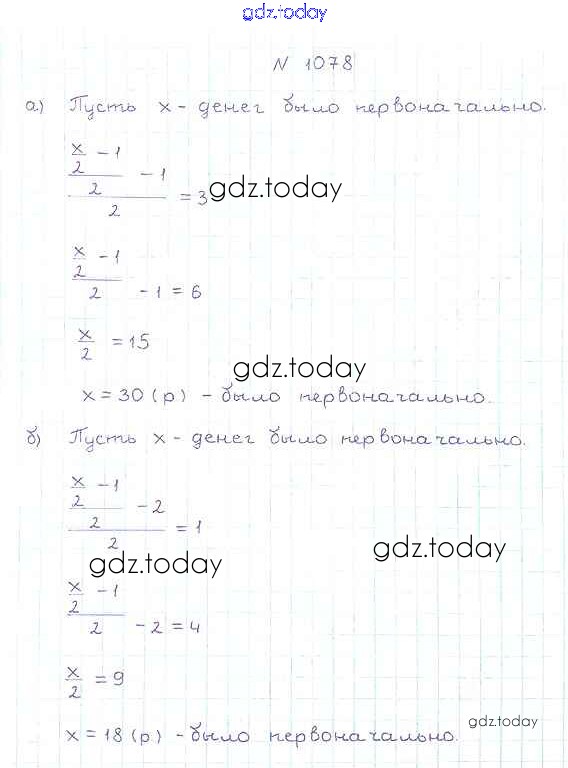 gdz.today
N 1078
а) Пусть x - денег было первоначально.
((x/2 - 1)/2 - 1)/2 = 3
gdz.today
(x/2 - 1)/2 - 1 = 6
x/2 = 15
gdz.today
x = 30 (р) - было первоначально.
б) Пусть x - денег было первоначально.
((x/2 - 1)/2 - 2)/2 = 1
gdz.today
gdz.today
(x/2 - 1)/2 - 2 = 4
x/2 = 9
gdz.today
x = 18 (р) - было первоначально.